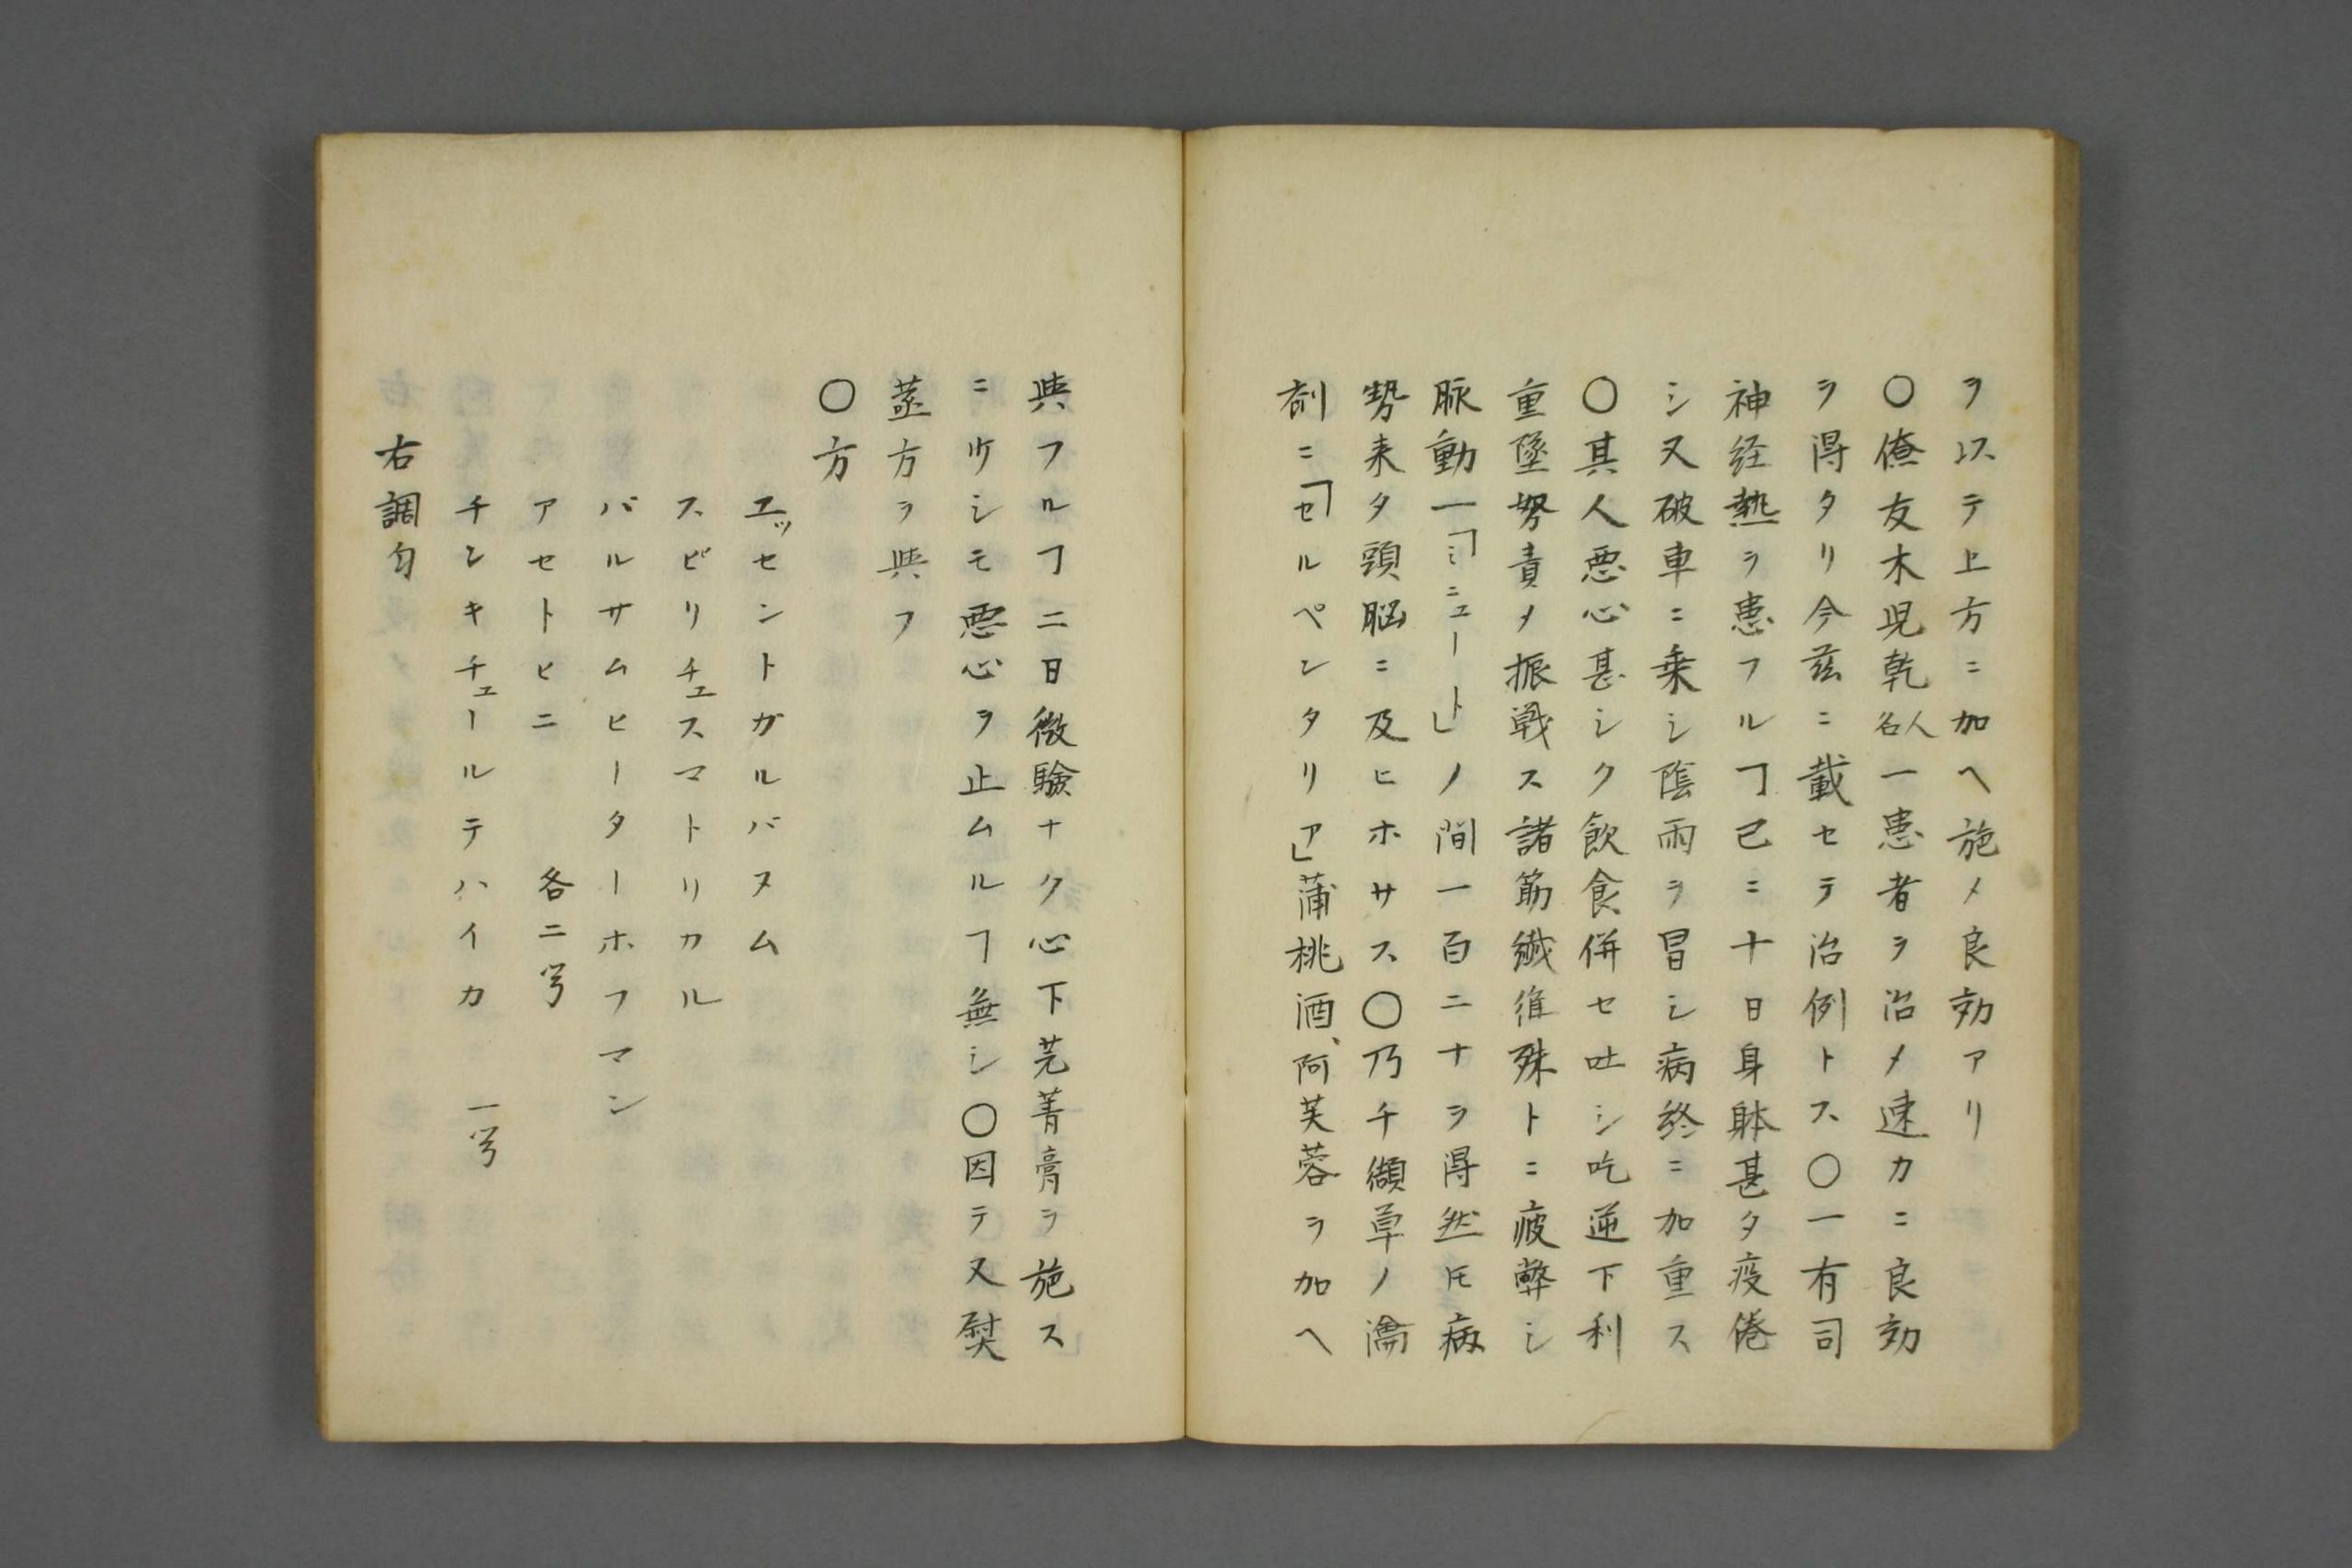 ヲ以テ上方ニ加ヘ施メ良効アリ
〇僚友木児乾人名一患者ヲ治メ速カニ良効
ヲ得タリ今茲ニ載セテ治例トス〇一有司
神経熱ヲ患フルヿ已ニ十日身躰甚タ疫倦
シ又破車ニ乗シ陰雨ヲ冒シ病終ニ加重ス
〇其人悪心甚シク飲食併セ吐シ吃逆下利
重墜努責メ振戦ス諸筋繊維殊トニ疲弊シ
脉動一「ミニュート」ノ間一百二十ヲ得然𪜈病
勢来タ頭脳ニ及ヒホサス〇乃チ纈草ノ濡
剤ニ「セルペンタリア」蒲桃酒、阿芙蓉ヲ加ヘ
與フルヿ二日微驗ナク心下芫菁膏ヲ施ス
ニ少シモ悪心ヲ止ムルヿ無シ〇因テ又熨
蒸方ヲ與フ
〇方
エッセントガルバヌム
スピリチェスマトリカル
バルサムヒーターホフマン
アセトヒニ 各二号
チンキチェールテハイカ 一号
右調匀